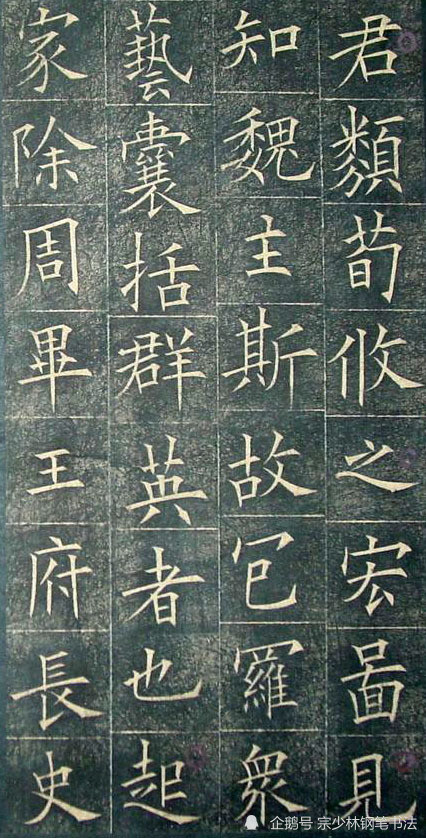 君類荀攸之宏圖見
知魏主斯故包羅衆
藝囊括群英者也起
家除周畢王府長史
企鹅号 宗少林钢笔书法